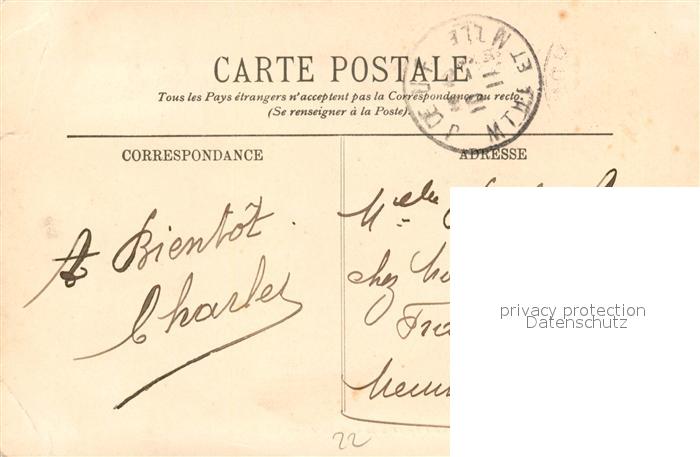 CARTE POSTALE
Tous les Pays étrangers n'acceptent pas la Correspondance au recto.
(Se renseigner à la Poste).
CORRESPONDANCE
ADRESSE
A Bientôt.
Charles
Melle
chez
privacy protection
Datenschutz
22